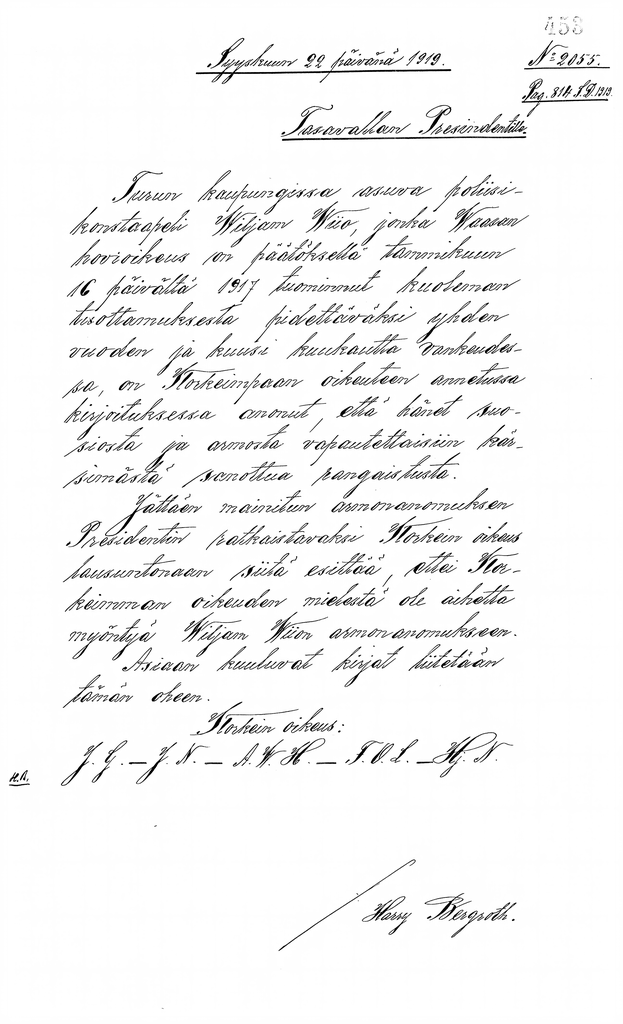 453
Syyskuun 22 päivänä 1919.
No 2055.
Pag. 814 S.D. 1919.
Tasavallan Presidentille.
Turun kaupungissa asuva poliisi-
konstaapeli Wiljam Wiio, jonka Waasan
hovioikeus on päätöksellä tammikuun
16 päivältä 1917 tuominnut kuoleman
tuottamuksesta pidettäväksi yhden
vuoden ja kuusi kuukautta vankeudes-
sa, on Korkeimpaan oikeuteen annetussa
kirjoituksessa anonut, että hänet suo-
siosta ja armosta vapautettaisiin kär-
simästä sanottua rangaistusta.
Jättäen mainitun armonanomuksen
Presidentin ratkaistavaksi Korkein oikeus
lausuntonaan siitä esittää, ettei Kor-
keimman oikeuden mielestä ole aihetta
myöntyä Wiljam Wiion armonanomukseen.
Asiaan kuuluvat kirjat liitetään
tämän oheen.
Korkein oikeus:
J. G. – J. N. – A. W. H. – T. O. L. – Hj. N.
H.B.
Harry Bergroth.